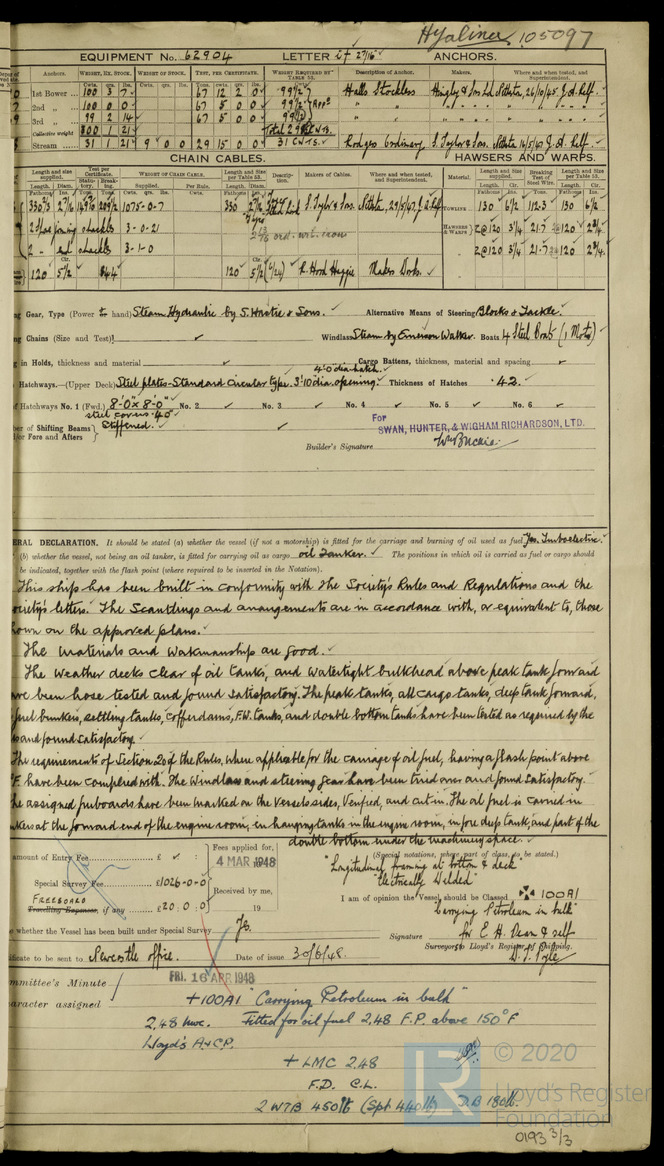 Hyalina 105097
EQUIPMENT No. 62904 LETTER ANCHORS.
Anchors. WEIGHT, EX. STOCK. WEIGHT OF STOCK. TEST, PER CERTIFICATE. WEIGHT REQUIRED BY TABLE 53. Description of Anchor. Makers. Where and when tested, and Superintendent.
Cwts. qrs. lbs. Cwts. qrs. lbs. Tons. cwts. qrs. lbs.
1st Bower 100 3 7 67 12 2 0 99½ Halls Stockless
2nd „ 100 0 0 67 5 0 0 99½
3rd „ 99 2 14 67 5 0 0
Collective weight 300 1 21
Stream 31 1 21 9 0 0 29 15 0 0 31 cwts. Rodgers Ordinary
CHAIN CABLES. HAWSERS AND WARPS.
Length and size supplied. Test per Certificate. WEIGHT OF CHAIN CABLE. Length and Size per Table 53. Description. Makers of Cables. Where and when tested, and Superintendent. Material. Length and Size supplied. Breaking Test of Steel Wire. Length and Size per Table 53.
Length. Diam. Statutory. Breaking. Supplied. Per Rule. Length. Diam. Length. Cir. Length. Cir.
1075-0-7 330 2 7/16 Stud Link S. Taylor & Sons. TOWLINE 130 6½ 112.3 130 6½
2 joining shackles 3-0-21 HAWSERS & WARPS 2@120 3¼ 21.7 2@120 2¾
2 - end shackles 3-1-0 2@120 3¼ 21.7 2@120 2¾
120 5½ 120 5½ (6/24) R. Hood Haggie Makers Works.
Gear, Type (Power or hand) Steam Hydraulic by S. Hastie & Sons. Alternative Means of Steering Blocks & Tackle.
Chains (Size and Test) Windlass Steam by Emerson Walker. Boats 4 Steel Boats (1 Motor)
in Holds, thickness and material Cargo Battens, thickness, material and spacing
4'0 dia hatch.
Hatchways.—(Upper Deck) Steel plates-Standard circular type. 3'10 dia. opening. Thickness of Hatches .42.
Hatchways No. 1 (Fwd.) 8'-0" x 8'-0" No. 2 No. 3 No. 4 No. 5 No. 6
steel covers .40
of Shifting Beams or Fore and Afters Stiffened.
For
SWAN, HUNTER, & WIGHAM RICHARDSON, LTD.
Builder's Signature
ERAL DECLARATION. It should be stated (a) whether the vessel (if not a motorship) is fitted for the carriage and burning of oil used as fuel Yes. Turboelectric.
(b) whether the vessel, not being an oil tanker, is fitted for carrying oil as cargo oil Tanker. The positions in which oil is carried as fuel or cargo should
be indicated, together with the flash point (where required to be inserted in the Notation).
This ship has been built in conformity with the Society's Rules and Regulations and the
ociety's letters. The Scantlings and arrangements are in accordance with, or equivalent to, those
hown on the approved plans.
The Materials and Workmanship are good.
The Weather decks clear of oil tanks, and Watertight bulkhead above peak tank forward
ve been hose tested and found satisfactory. The peak tanks, all cargo tanks, deep tank forward,
fuel bunkers, settling tanks, cofferdams, F.W. tanks, and double bottom tanks have been tested as required by the
and found satisfactory.
The requirements of Section 20 of the Rules, where applicable for the carriage of oil fuel, having a flash point above
°F. have been complied with. The Windlass and steering gear have been tried over and found satisfactory.
he assigned freeboards have been marked on the Vessel's sides, Verified, and cut in. The oil fuel is carried in
nkers at the forward end of the engine room, in hanging tanks in the engine room, in fore deep tank, and part of the
double bottom under the machinery space.
(Special notations, where part of class, to be stated.)
"Longitudinal framing at bottom & deck"
"Electrically Welded"
amount of Entry Fee £ Fees applied for,
4 MAR 1948
Special Survey Fee £1026-0-0 Received by me,
FREEBOARD
Travelling Expenses, if any £20:0:0 19
I am of opinion the Vessel should be Classed 100A1
"Carrying Petroleum in bulk"
whether the Vessel has been built under Special Survey Yes.
Signature for E. H. Dean & self
Surveyor to Lloyd's Register of Shipping.
ificate to be sent to Newcastle office. Date of issue 30/6/48.
FRI. 16 APR 1948
mmittee's Minute
aracter assigned +100A1 "Carrying Petroleum in bulk"
2,48 Fitted for oil fuel 2,48 F.P. above 150°F
Lloyd's A&CP.
+ LMC 2,48
F.D. C.L.
2 WTB 450 lb (Spt 440 lb) DB 180 lb.
LR © 2020
Lloyd's Register
Foundation
0193 3/3